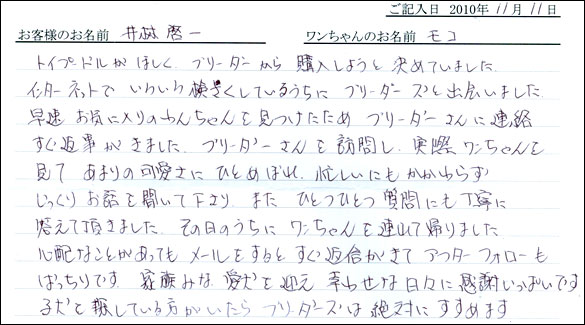 ご記入日 2010年 11月 11日
お客様のお名前 井越 啓一 ワンちゃんのお名前 モコ
トイプードルがほしく、ブリーダーから購入しようと決めていました。
インターネットでいろいろ検さくしているうちにブリーダーズと出会いました
早速お気に入りのわんちゃんを見つけたためブリーダーさんに連絡
すぐ返事がきました。ブリーダーさんを訪問し、実際ワンちゃんを
見てあまりの可愛さにひとめぼれ、忙しいにもかかわらず
じっくりお話を聞いて下さり、またひとつひとつ質問にも丁寧に
答えて頂きました。その日のうちにワンちゃんを連れて帰りました
心配なことがあってもメールをするとすぐ返信がきてアフターフォローも
ばっちりです。家族みな愛犬を迎え幸わせな日々に感謝いっぱいです
子犬を探している方がいたらブリーダーズは絶対にすすめます